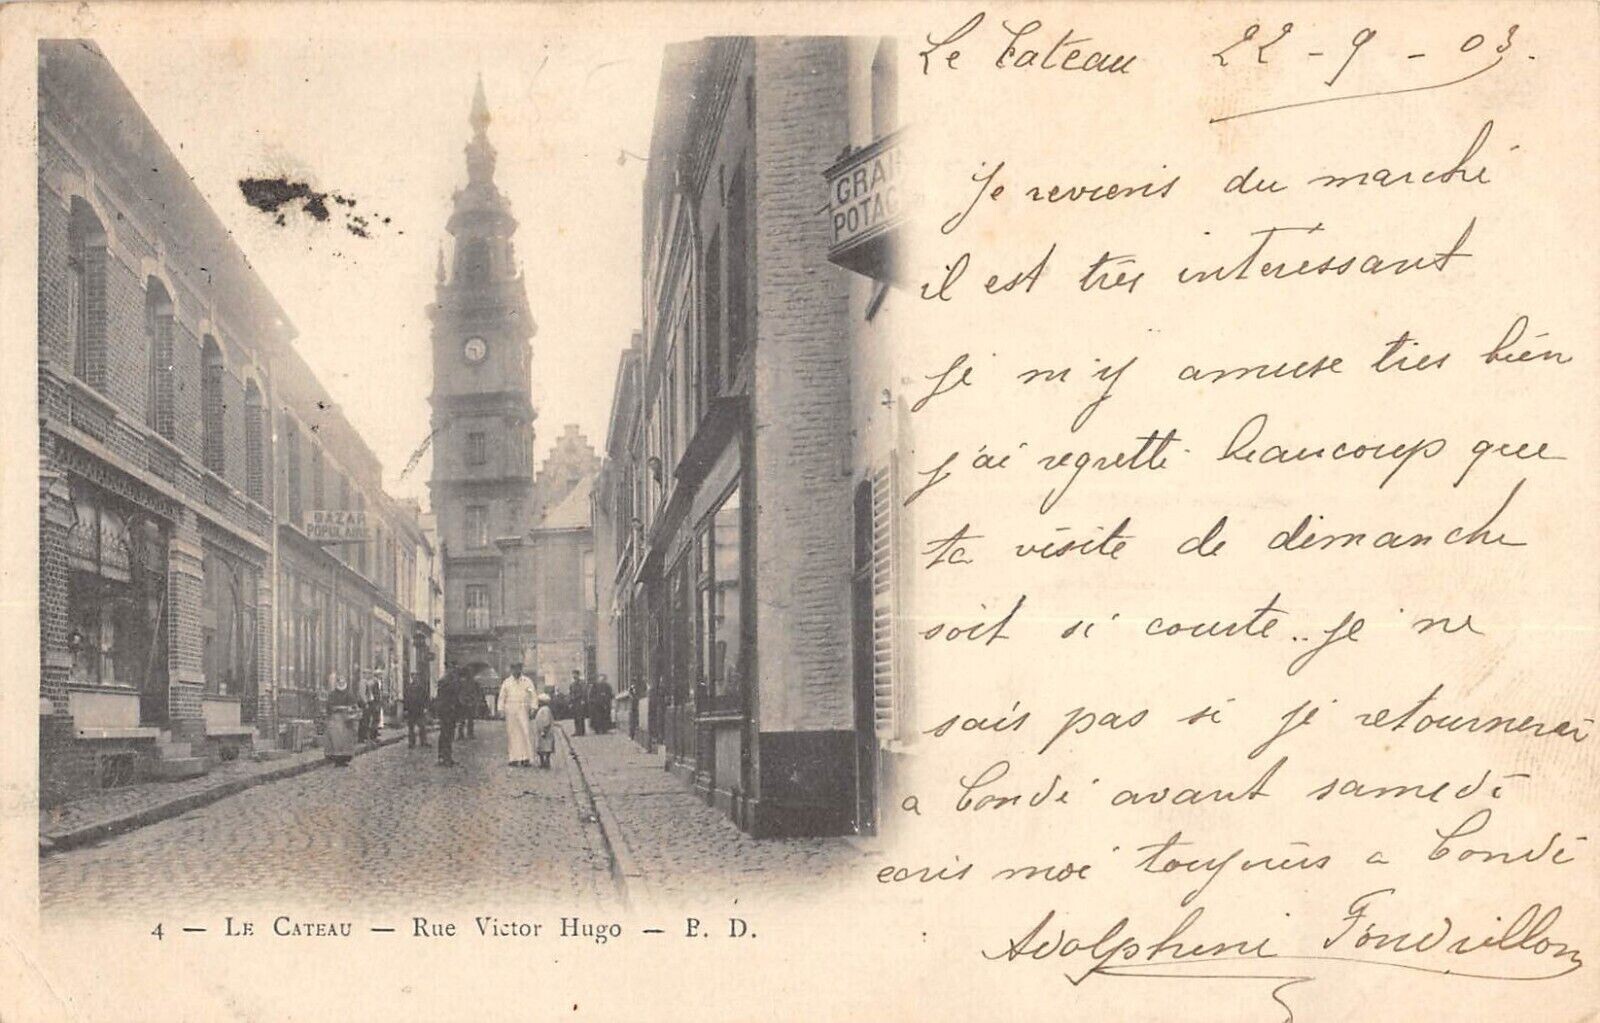 Le Cateau 22-9-03.
Je reviens du marché
il est très intéressant
je m'y amuse très bien
j'ai regretté beaucoup que
ta visite de dimanche
soit si courte.. je ne
sais pas si je retournerai
a Condé avant samedi
ecris moi toujours a Condé
Adolphine Fondrillon
GRAI
POTAG
BAZAR
POPULAIRE
4 — LE CATEAU — Rue Victor Hugo — B. D.